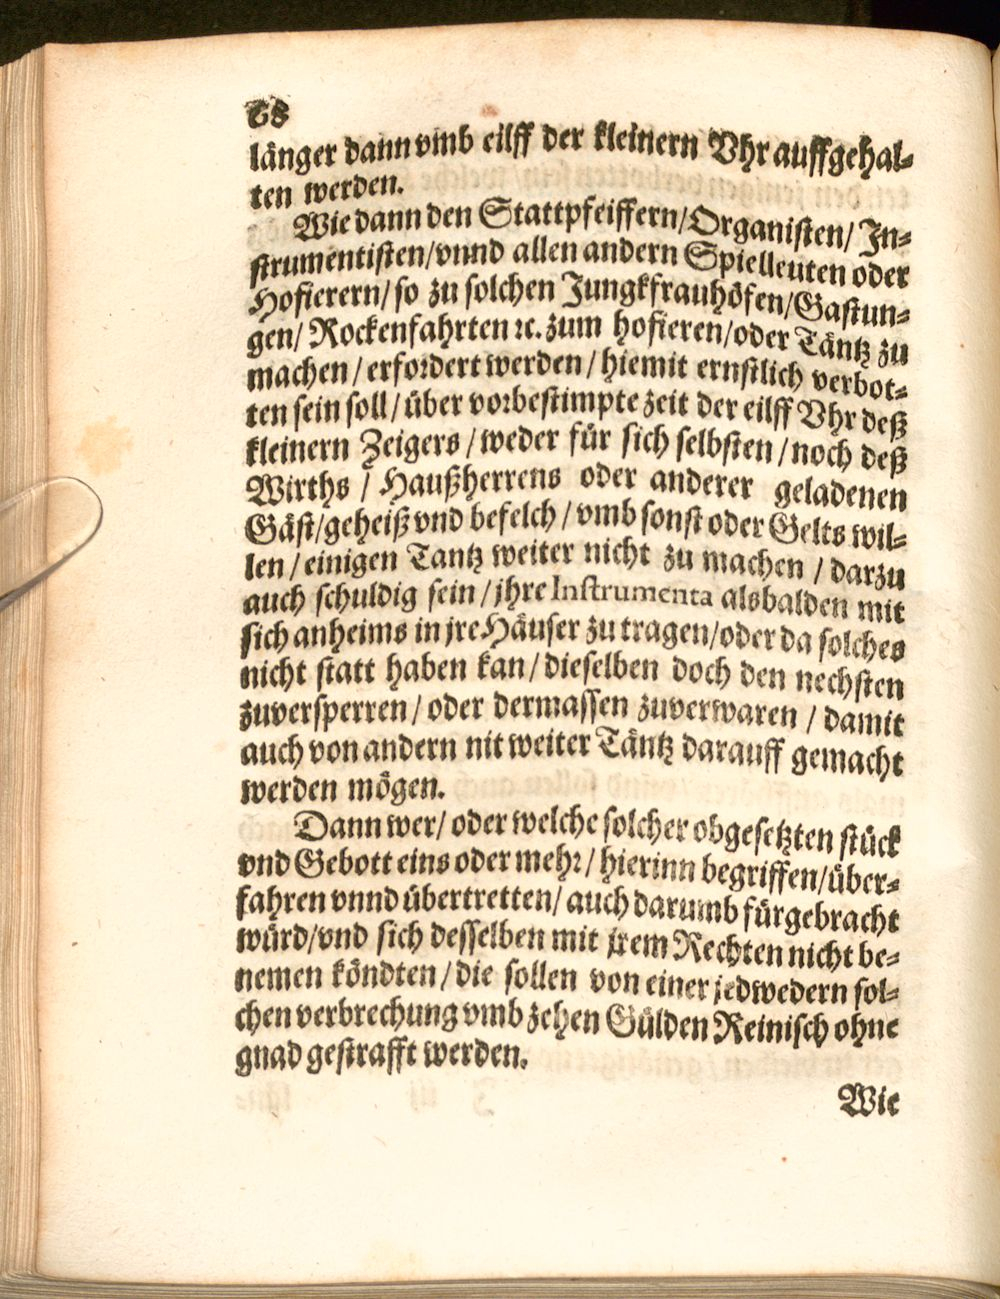 68
länger dann vmb eilff der kleinern Vhr auffgehal-
ten werden.
Wie dann den Stattpfeiffern/Organisten/ In-
strumentisten/vnnd allen andern Spielleuten oder
Hofierern/ so zu solchen Jungkfrauhöfen/Gastun-
gen/ Rockenfahrten ꝛc. zum hofieren/oder Täntz zu
machen / erfordert werden / hiemit ernstlich verbot-
ten sein soll / über vorbestimpte zeit der eilff Vhr deß
kleinern Zeigers / weder für sich selbsten / noch deß
Wirths / Haußherrens oder anderer geladenen
Gäst/geheiß vnd befelch / vmb sonst oder Gelts wil-
len / einigen Tantz weiter nicht zu machen / darzu
auch schuldig sein / jhre Instrumenta alsbalden mit
sich anheims in jre Häuser zu tragen/oder da solches
nicht statt haben kan / dieselben doch den nechsten
zuversperren / oder dermassen zuverwaren / damit
auch von andern nit weiter Täntz darauff gemacht
werden mögen.
Dann wer/ oder welche solcher obgesetzten stück
vnd Gebott eins oder mehr / hierinn begriffen/über-
fahren vnnd übertretten/ auch darumb fürgebracht
würd/vnd sich desselben mit jrem Rechten nicht be-
nemen köndten / die sollen von einer jedwedern sol-
chen verbrechung vmb zehen Gülden Reinisch ohne
gnad gestrafft werden.
Wie